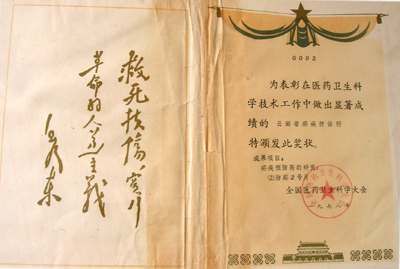 救死扶傷，實行
革命的人道主義
毛泽东
0092
为表彰在医药卫生科
学技术工作中做出显著成
绩的 云南省疟疾防治所
特颁发此奖状。
成果项目：
疟疾预防药的研究：
⑵防疟2号片
全国医药卫生科学大会
一九七八年